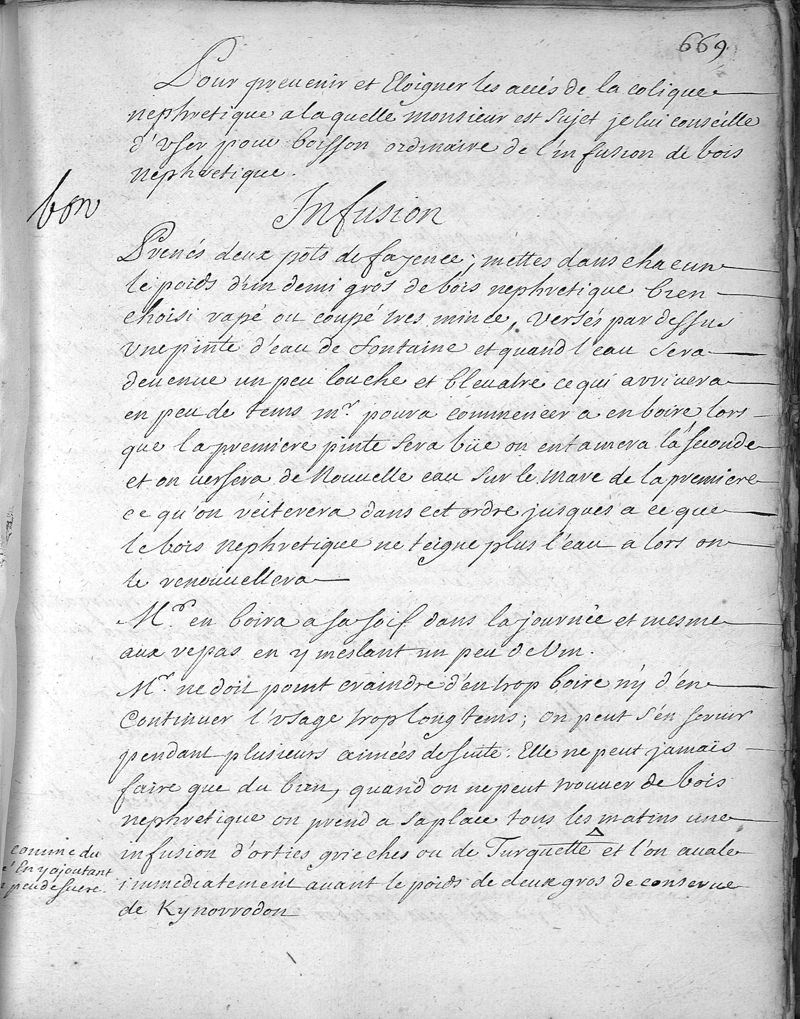 669
Pour prevenir et Eloigner les accés de la colique
nephretique a laquelle monsieur est sujet je lui conseille
d'Vser pour boisson ordinaire de l'infusion de bois
nephretique.
bon
Infusion
Prenés deux pots de fayence; mettes dans chacun
le poids d'un demi gros de bois nephretique bien
choisi rapé ou coupé tres mince, versés par dessus
Vne pinte d'eau de fontaine et quand l'eau sera
devenue un peu louche et bleuatre ce qui arrivera
en peu de tems mr. poura commencer a en boire lors
que la premiere pinte sera büe on entamera la seconde
et on versera de Nouvelle eau sur le marc de la premiere
ce qu'on réiterera dans cet ordre jusques a ce que
le bois nephretique ne teigne plus l'eau alors on
le renouvellera
Mr. en boira a sa soif dans la journée et mesme
aux repas en y meslant un peu de Vin.
Mr. ne doit point craindre d'en trop boire ny d'en
Continuer l'Vsage trop longtems; on peut s'en servir
pendant plusieurs années de suite. Elle ne peut jamais
faire que du bien, quand on ne peut trouver de bois
nephretique on prend a sa place tous les matins une
infusion d'orties grieches ou de Turquette Δ et l'on avale
immediatement avant le poids de deux gros de conserve
de Kynorrodon
comme du
é En y ajoutant
peu de sucre.